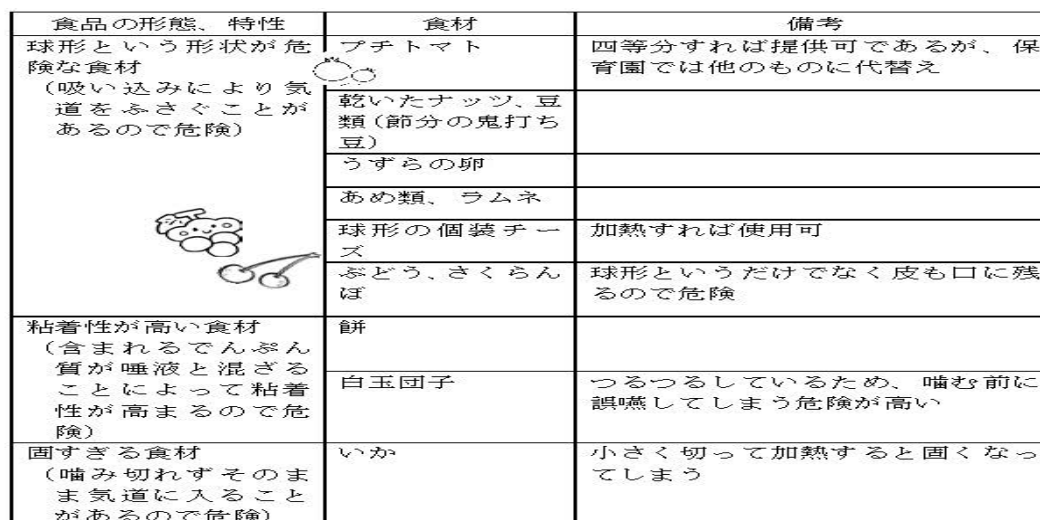 食品の形態、特性
食材
備考
球形という形状が危
険な食材
(吸い込みにより気
道をふさぐことが
あるので危険)
プチトマト
四等分すれば提供可であるが、保
育園では他のものに代替え
乾いたナッツ、豆
類(節分の鬼打ち
豆)
うずらの卵
あめ類、ラムネ
球形の個装チー
ズ
加熱すれば使用可
ぶどう、さくらん
ぼ
球形というだけでなく皮も口に残
るので危険
粘着性が高い食材
(含まれるでんぷん
質が唾液と混ざる
ことによって粘着
性が高まるので危
険)
餅
白玉団子
つるつるしているため、噛む前に
誤嚥してしまう危険が高い
固すぎる食材
(噛み切れずそのま
ま気道に入ること
があるので危険)
いか
小さく切って加熱すると固くなっ
てしまう